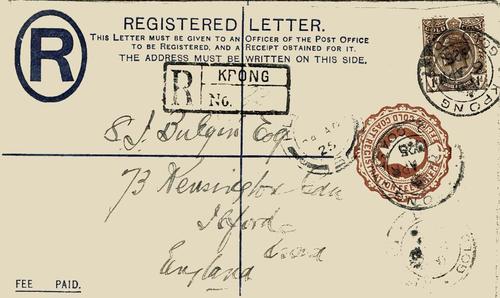 REGISTERED LETTER.
THIS LETTER MUST BE GIVEN TO AN OFFICER OF THE POST OFFICE
TO BE REGISTERED, AND A RECEIPT OBTAINED FOR IT.
THE ADDRESS MUST BE WRITTEN ON THIS SIDE.
R
R KPONG
No.
KPONG
S. J. Bulgin Esq
25
GOLD COAST REGISTRATION
73 Kensington Gdns
Ilford
England
FEE PAID.